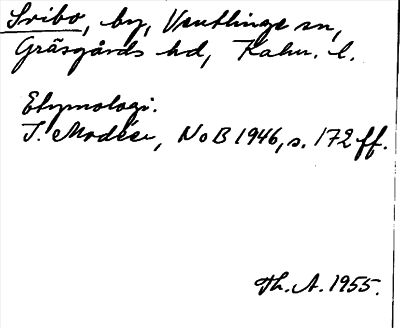 Sribo, by, Ventlinge sn,
Gräsgårds hd, Kalm. l.
Etymologi.
I. Modéer, NoB 1946, s. 172 ff.
Th. A. 1955.